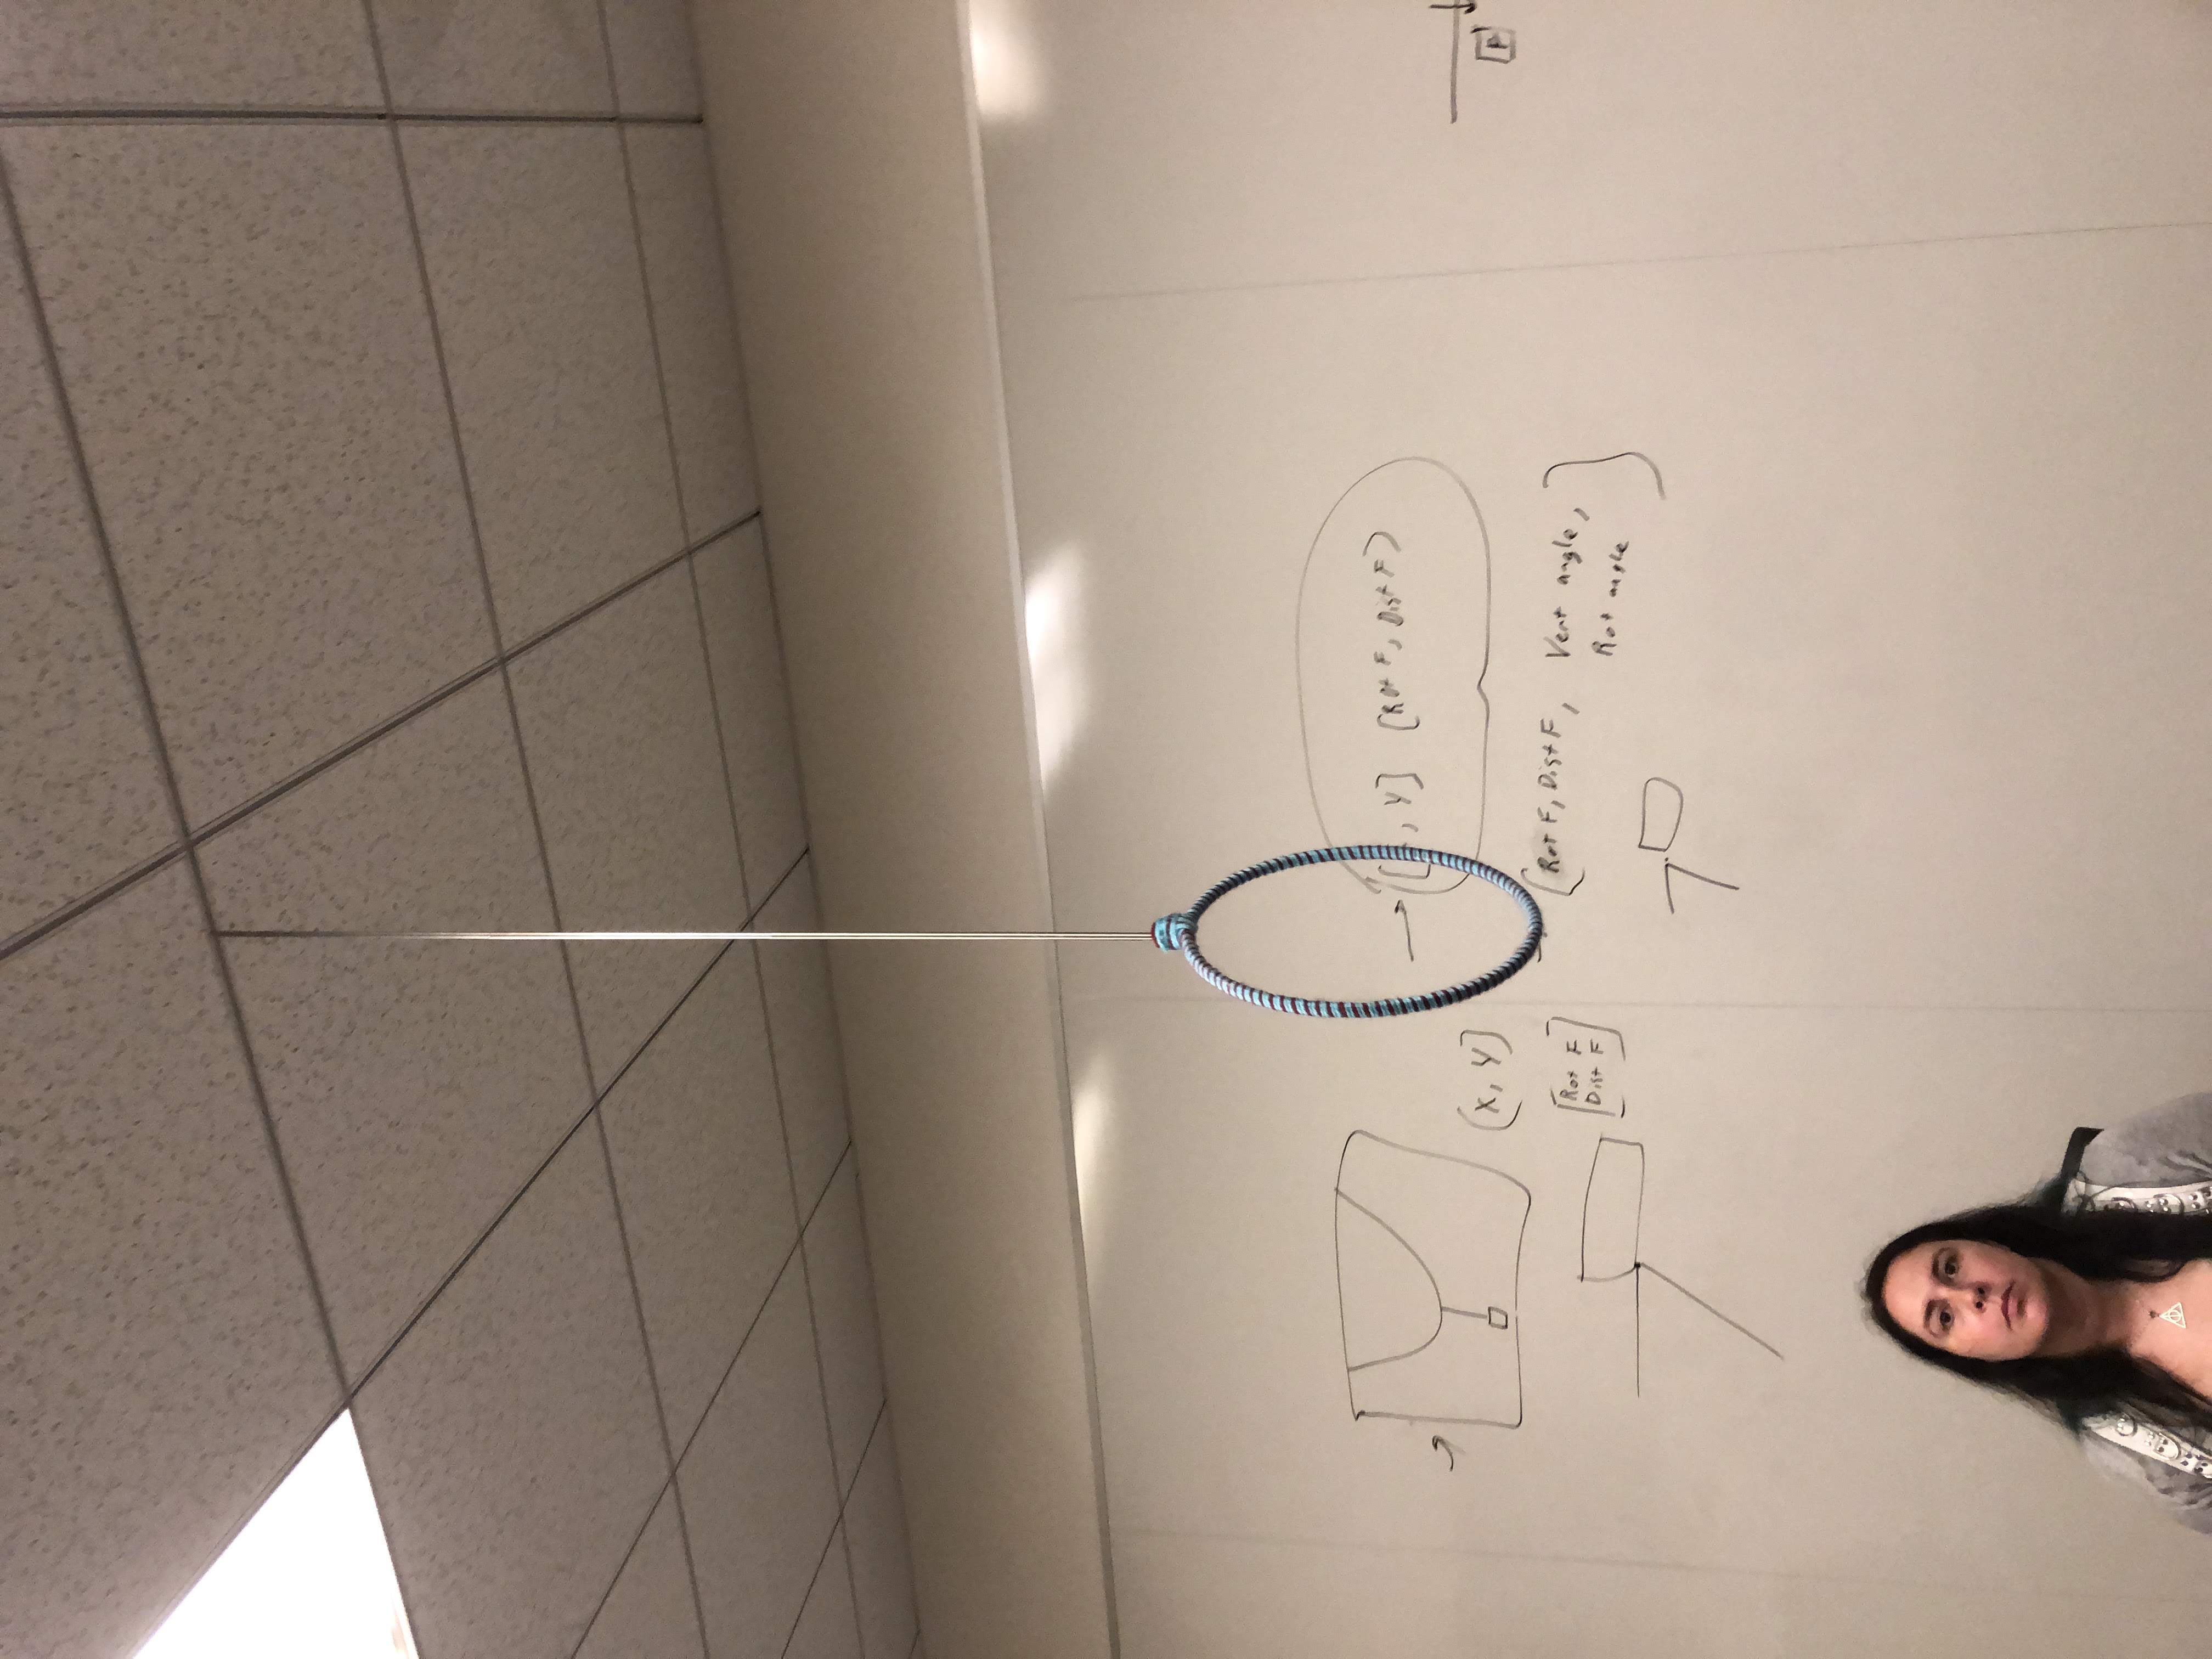 (X, Y]
[Rot F
Dist F]
, Y] (Rot F, Dist F)
[Rot F, Dist F, Vert angle,
Rot angle]
P